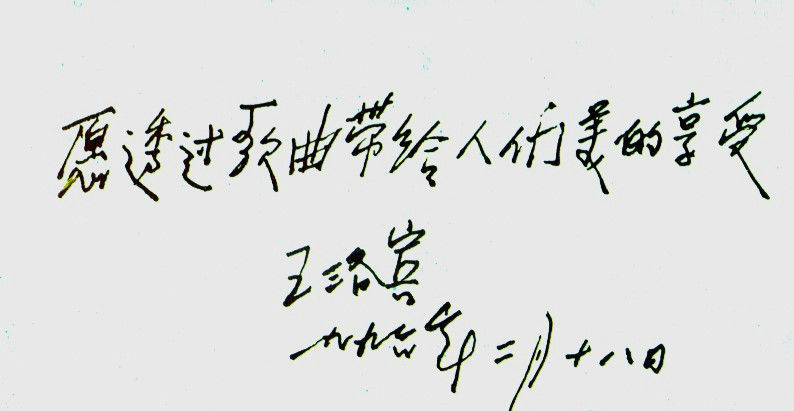 愿透过歌曲带给人们美的享受
王洛宾
一九九六年二月十八日